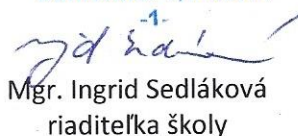 -1-
Mgr. Ingrid Sedláková
riaditeľka školy